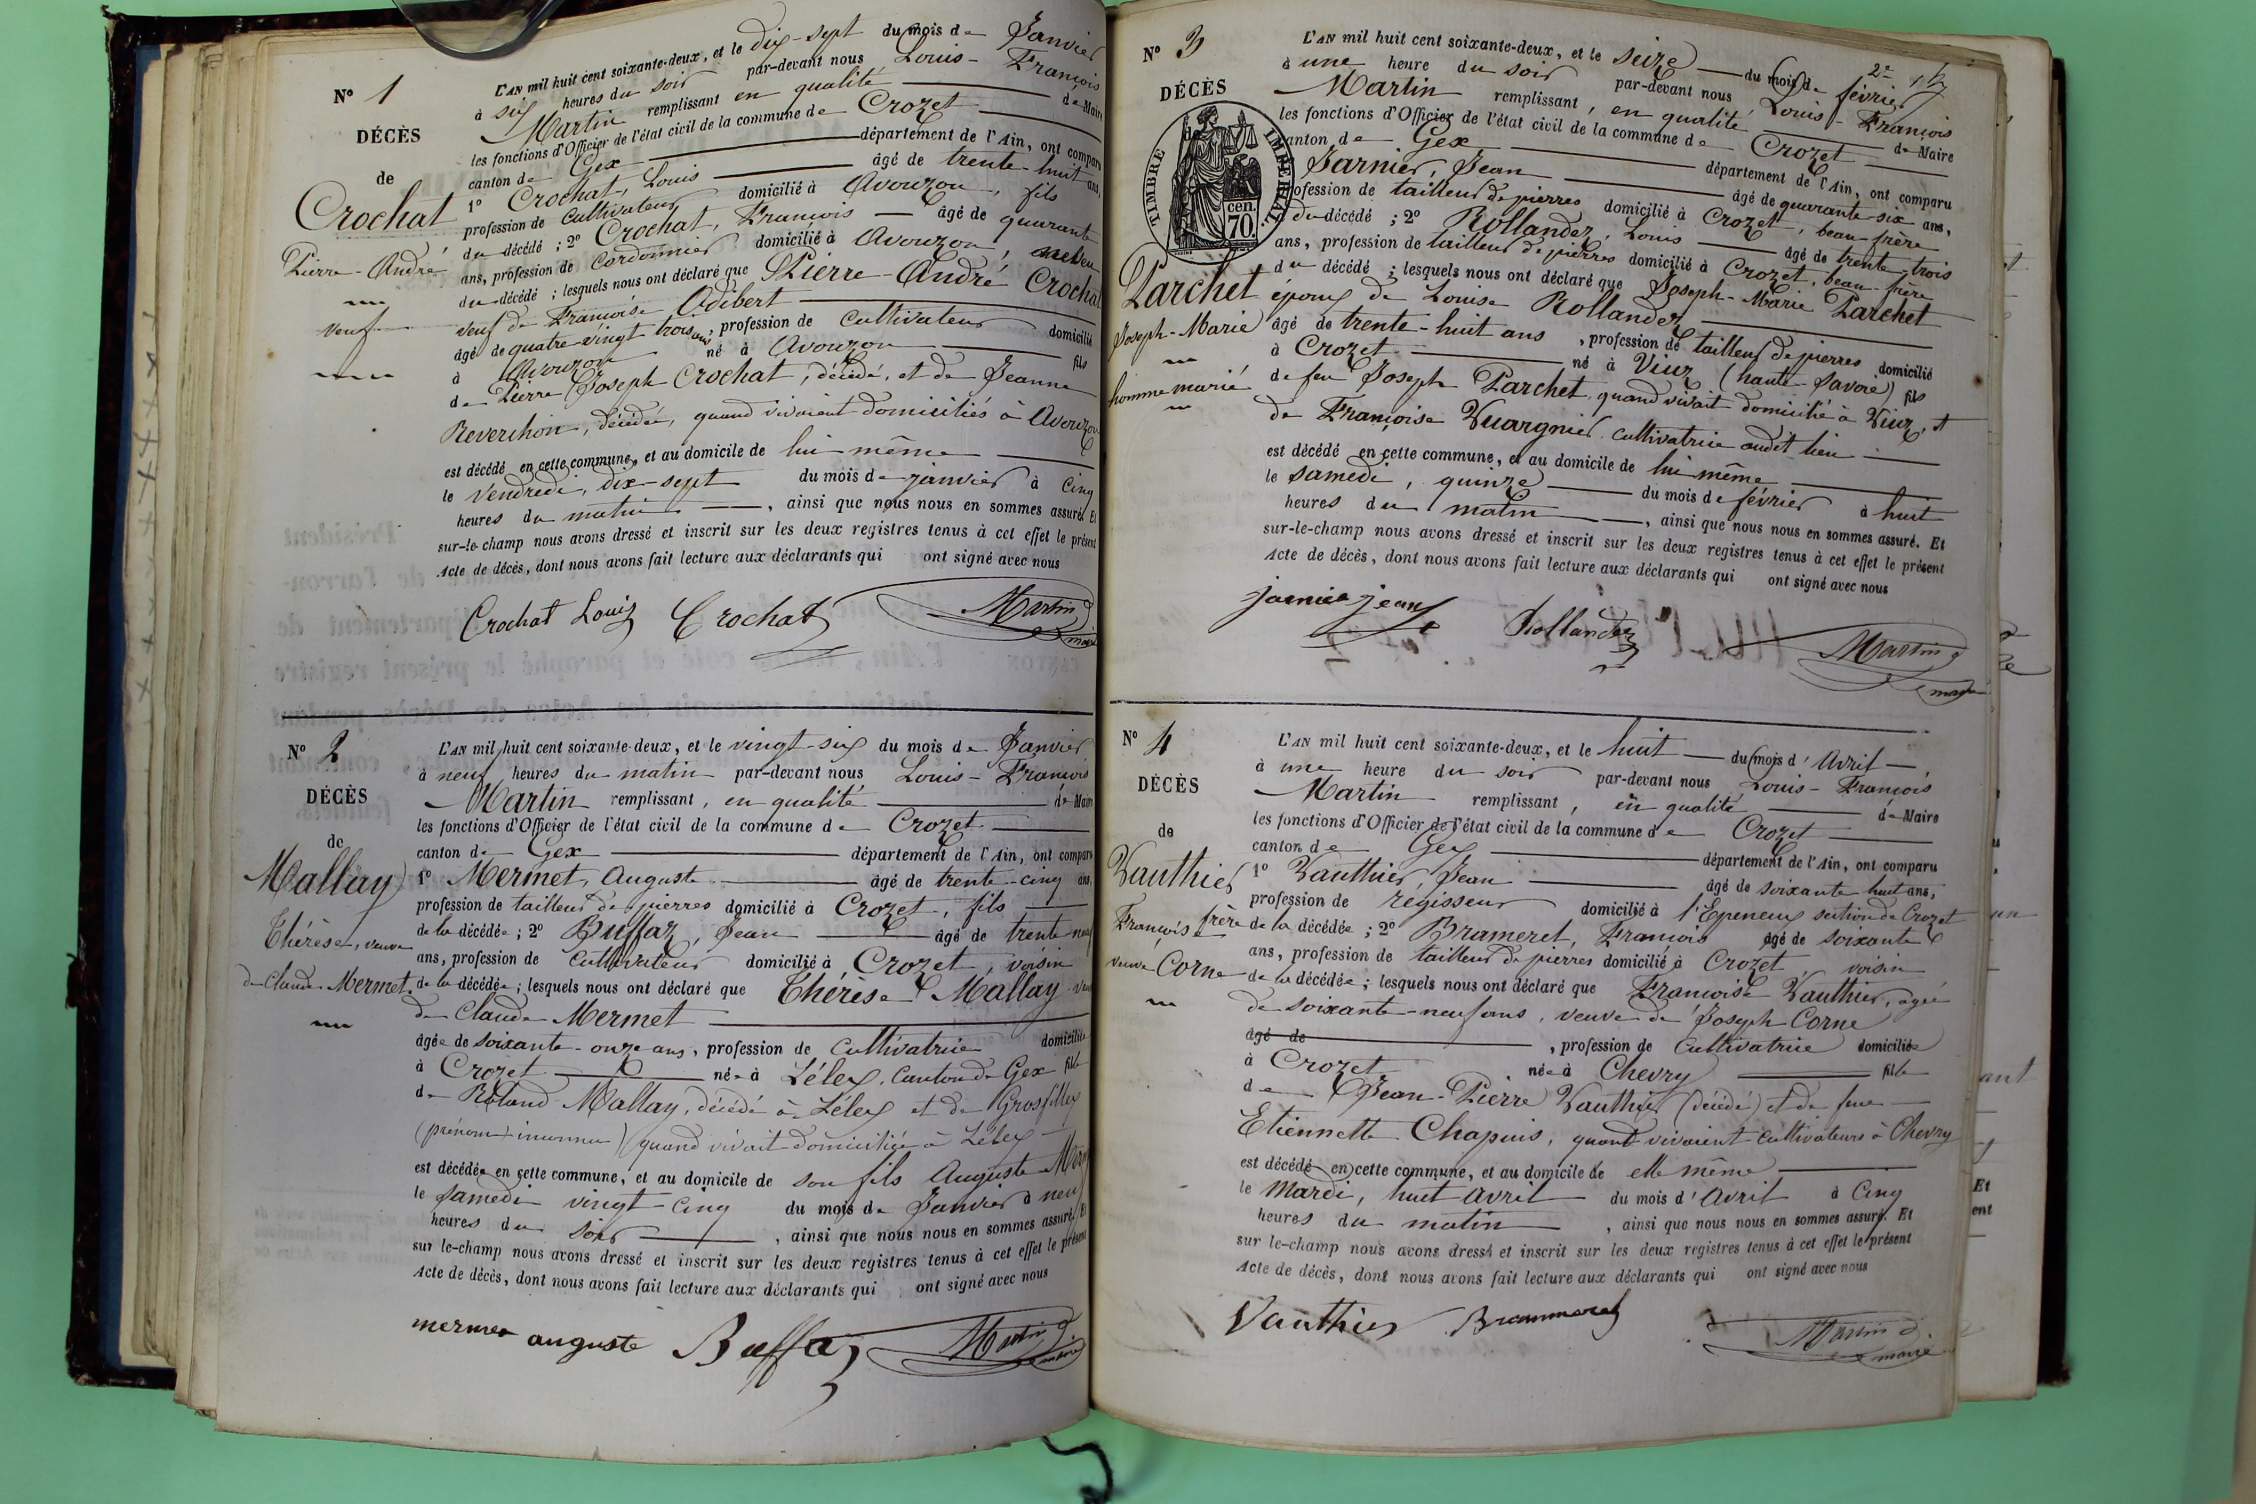 N° 1
DÉCÈS
de
Crochat
Pierre-André
veuf
L'AN mil huit cent soixante-deux, et le dix-sept du mois de Janvier
à six heures du soir par-devant nous Louis-François
Martin remplissant en qualité de Maire
les fonctions d'Officier de l'état civil de la commune de Crozet
canton de Gex département de l'Ain, ont comparu
1° Crochat, Louis âgé de trente-huit ans,
profession de cultivateur domicilié à Avouzon, fils
du décédé ; 2° Crochat, François âgé de quarante
ans, profession de cordonnier domicilié à Avouzon, neveu
du décédé ; lesquels nous ont déclaré que Pierre-André Crochat
veuf de Françoise Odibert
âgé de quatre vingt trois ans, profession de cultivateur domicilié
à Avouzon né à Avouzon fils
de Pierre Joseph Crochat, décédé, et de Jeanne
Reverchon, décédée, quand vivaient domiciliés à Avouzon
est décédé en cette commune, et au domicile de lui même
le vendredi, dix-sept du mois de janvier à cinq
heures du matin, ainsi que nous nous en sommes assuré. Et
sur-le-champ nous avons dressé et inscrit sur les deux registres tenus à cet effet le présent
Acte de décès, dont nous avons fait lecture aux déclarants qui ont signé avec nous
Crochat Louis Crochat Martin
maire
N° 2
DÉCÈS
de
Mallay
Thérèse, veuve
de Claude Mermet.
L'AN mil huit cent soixante-deux, et le vingt-six du mois de Janvier
à neuf heures du matin par-devant nous Louis-François
Martin remplissant, en qualité de Maire
les fonctions d'Officier de l'état civil de la commune de Crozet
canton de Gex département de l'Ain, ont comparu
1° Mermet, Auguste âgé de trente-cinq ans,
profession de tailleur de pierres domicilié à Crozet, fils
de la décédée ; 2° Buffaz, Jean âgé de trente neuf
ans, profession de cultivateur domicilié à Crozet, voisin
de la décédée ; lesquels nous ont déclaré que Thérèse Mallay
de Claude Mermet
âgée de soixante-onze ans, profession de cultivatrice domiciliée
à Crozet née à Lélex, canton de Gex fille
de Roland Mallay, décédé à Lélex et de Grosfilley
(prénom inconnu) quand vivait domiciliée à Lélex
est décédée en cette commune, et au domicile de son fils Auguste
le samedi vingt-cinq du mois de Janvier à neuf
heures du soir, ainsi que nous nous en sommes assuré. Et
sur le-champ nous avons dressé et inscrit sur les deux registres tenus à cet effet le présent
Acte de décès, dont nous avons fait lecture aux déclarants qui ont signé avec nous
mermet auguste Buffaz Martin
maire
N° 3
DÉCÈS
de
TIMBRE IMPÉRIAL.
cen.
70.
Parchet
Joseph-Marie
homme marié
L'AN mil huit cent soixante-deux, et le seize du mois de février
à une heure du soir par-devant nous Louis-François
Martin remplissant, en qualité de Maire
les fonctions d'Officier de l'état civil de la commune de Crozet
canton de Gex département de l'Ain, ont comparu
Jarnier, Jean âgé de quarante-six ans,
profession de tailleur de pierres domicilié à Crozet, beau frère
du décédé ; 2° Rollandez, Louis âgé de trente-trois
ans, profession de tailleur de pierres domicilié à Crozet, beau-frère
du décédé ; lesquels nous ont déclaré que Joseph-Marie Parchet
époux de Louise Rollandez
âgé de trente-huit ans, profession de tailleur de pierres domicilié
à Crozet né à Viuz (haute-Savoie) fils
de feu Joseph Parchet, quand vivait domicilié à Viuz, et
de Françoise Vuargnier cultivatrice audit lieu
est décédé en cette commune, et au domicile de lui même
le samedi, quinze du mois de février à huit
heures du matin, ainsi que nous nous en sommes assuré. Et
sur-le-champ nous avons dressé et inscrit sur les deux registres tenus à cet effet le présent
Acte de décès, dont nous avons fait lecture aux déclarants qui ont signé avec nous
jarnier jean Rollandez Martin
maire
N° 4
DÉCÈS
de
Vauthier
Françoise
veuve Corne
L'AN mil huit cent soixante-deux, et le huit du mois d'Avril
à une heure du soir par-devant nous Louis-François
Martin remplissant, en qualité de Maire
les fonctions d'Officier de l'état civil de la commune de Crozet
canton de Gex département de l'Ain, ont comparu
1° Vauthier, Jean âgé de soixante huit ans,
profession de régisseur domicilié à l'Epeneux section de Crozet
frère de la décédée ; 2° Brameret, François âgé de soixante
ans, profession de tailleur de pierres domicilié à Crozet, voisin
de la décédée ; lesquels nous ont déclaré que Françoise Vauthier, agée
de soixante-neuf ans, veuve de Joseph Corne
âgé de, profession de cultivatrice domiciliée
à Crozet née à Chevry fille
de Jean-Pierre Vauthier (décédé) et de feue
Etiennette Chapuis, quand vivaient cultivateurs à Chevry
est décédé en cette commune, et au domicile de elle même
le Mardi, huit avril du mois d'Avril à cinq
heures du matin, ainsi que nous nous en sommes assuré. Et
sur le-champ nous avons dressé et inscrit sur les deux registres tenus à cet effet le présent
Acte de décès, dont nous avons fait lecture aux déclarants qui ont signé avec nous
Vauthier Brammeret Martin
maire